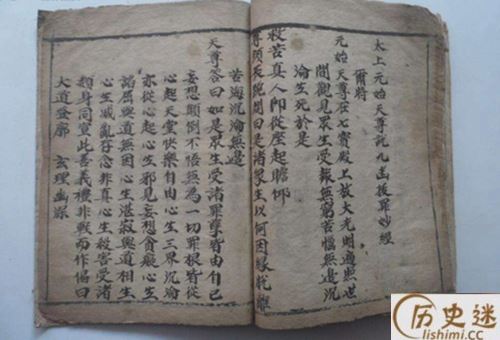 太上元始天尊說九幽拔罪妙經
爾將
元始天尊在七寶殿上放大光明遍照世
間觀見眾生受報無窮苦惱無邊沉
淪生死於是
救苦真人即從座起瞻仰
尊顏長跪問曰是諸眾生以何因緣離
苦海沉淪無邊
天尊答曰如是眾生受諸罪孽皆由自己
妄想顛倒不悟無為一切罪根皆從
心起天堂快樂自由心生三界沉淪
亦從心起心生邪見妄想貪癡心生
諂屈與道無因心生湛寂與道相生
心生滅亂存念非真心生殺害受諸
類身同宣此善義禮非戰而作偈曰
大道登廓 玄理幽深
历史迷
lishimi.cc